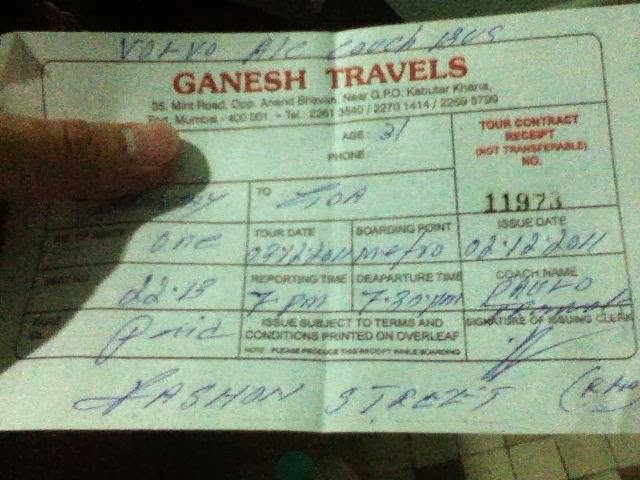 VOLVO A/C COUCH BUS
GANESH TRAVELS
35, Mint Road, Opp. Anand Bhavan, Near G.P.O. Kabutar Khana,
Mumbai - 400 001. Tel.: 2261 3540 / 2270 1414 / 2269 5799
AGE: 21
PHONE
TOUR CONTRACT
RECEIPT
(NOT TRANSFERABLE)
NO.
11973
TO GOA
one
TOUR DATE
BOARDING POINT
metro
ISSUE DATE
02-12-2011
22-13
REPORTING TIME
7 pm
DEAPARTURE TIME
7.30 pm
COACH NAME
PAULO
Paid
ISSUE SUBJECT TO TERMS AND
CONDITIONS PRINTED ON OVERLEAF
NOTE : PLEASE PRODUCE THIS RECEIPT WHILE BOARDING
SIGNATURE OF ISSUING CLERK
FASHON STREET